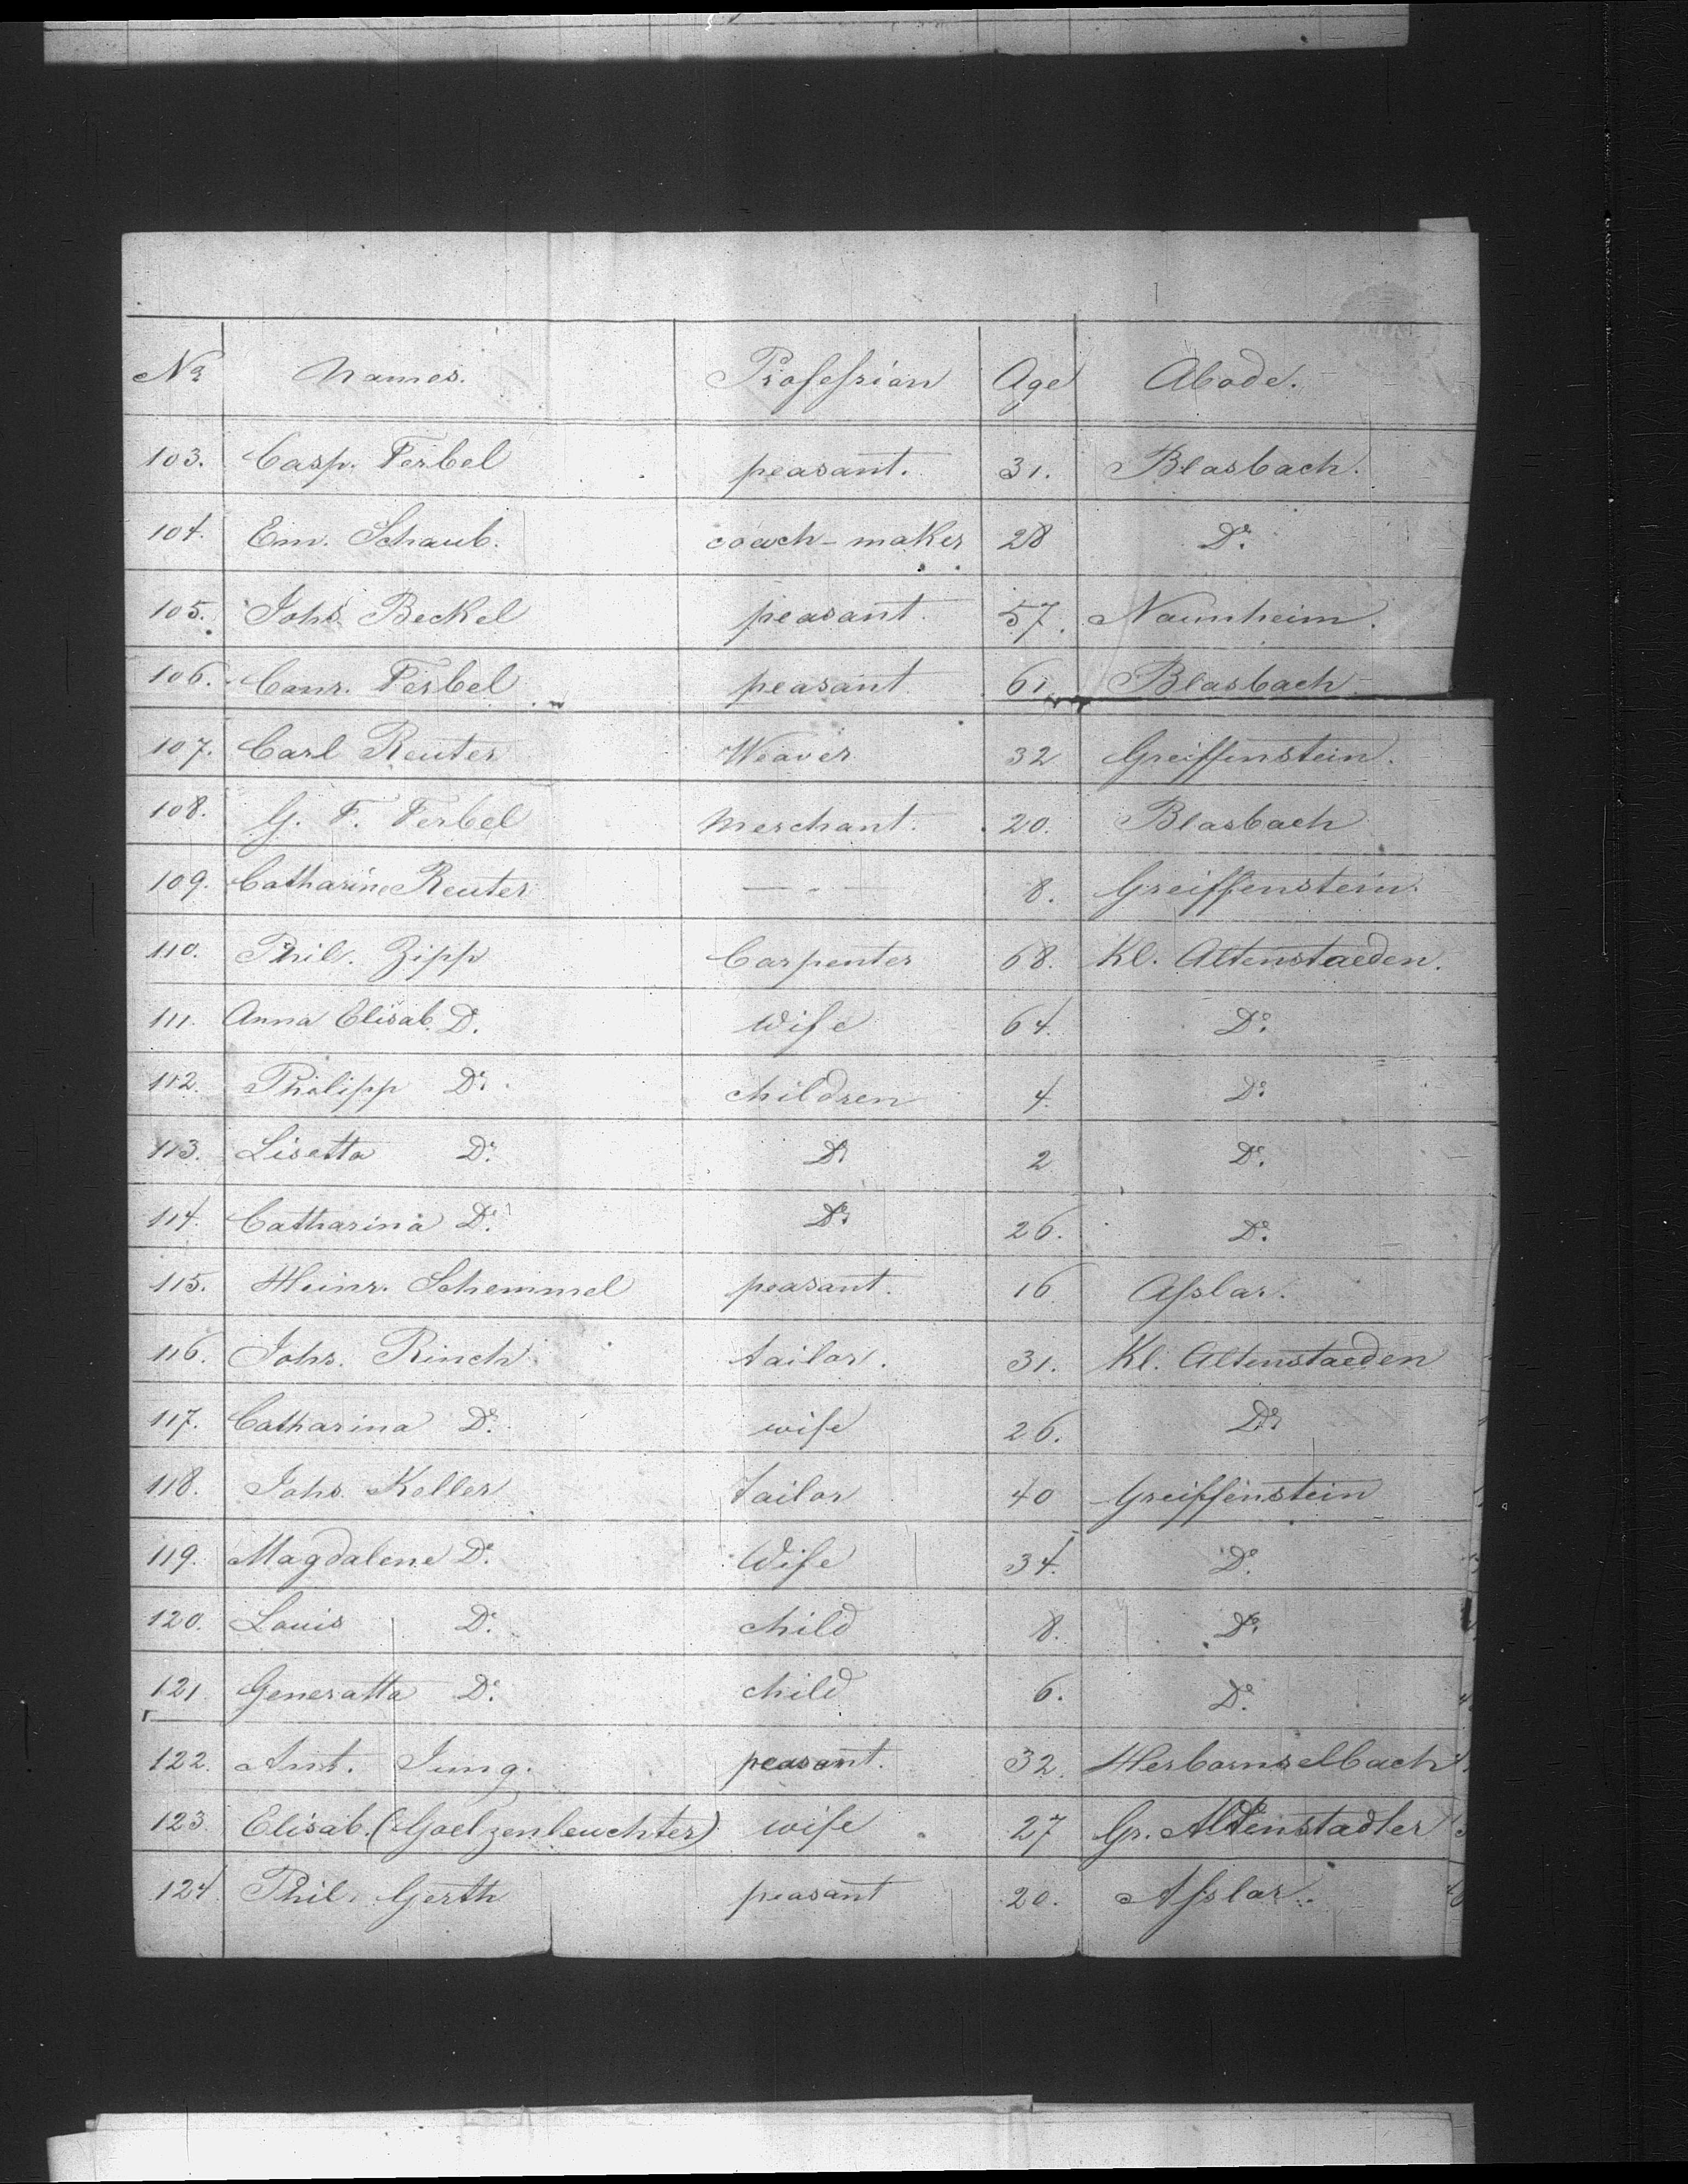 No. Names. Profession Age Abode.
103. Casp. Ferbel peasant. 31. Blasbach.
104. Em. Schaub. coach-maker 28 Do.
105. Johs. Beckel peasant. 57. Naunheim.
106. Conr. Ferbel peasant 61 Blasbach
107. Carl Reuter Weaver 32 Greiffenstein.
108. G. F. Ferbel Merchant. 20. Blasbach
109. Catharine Reuter — - — 8. Greiffenstein.
110. Phil. Zipp Carpenter 68. Kl. Altenstaeden.
111. Anna Elisab. D. Wife 64. Do.
112. Philipp Do. children 4. Do.
113. Lisetta Do. Do. 2 Do.
114. Catharina Do. Do. 26. Do.
115. Heinr. Schemmel peasant. 16 Asslar.
116. Johs. Rinch tailor. 31. Kl. Altenstaeden
117. Catharina Do. wife 26. Do.
118. Johs. Koller tailor 40 Greiffenstein
119. Magdalene Do. Wife 34. Do.
120. Louis Do. child 8. Do.
121 Generatta Do. child 6. Do.
122. Ant. Jung. peasant. 32. Herbornselbach
123. Elisab. (Goelzenleuchter) wife 27 Gr. Altenstadter
124 Phil. Gerth peasant 20. Asslar.